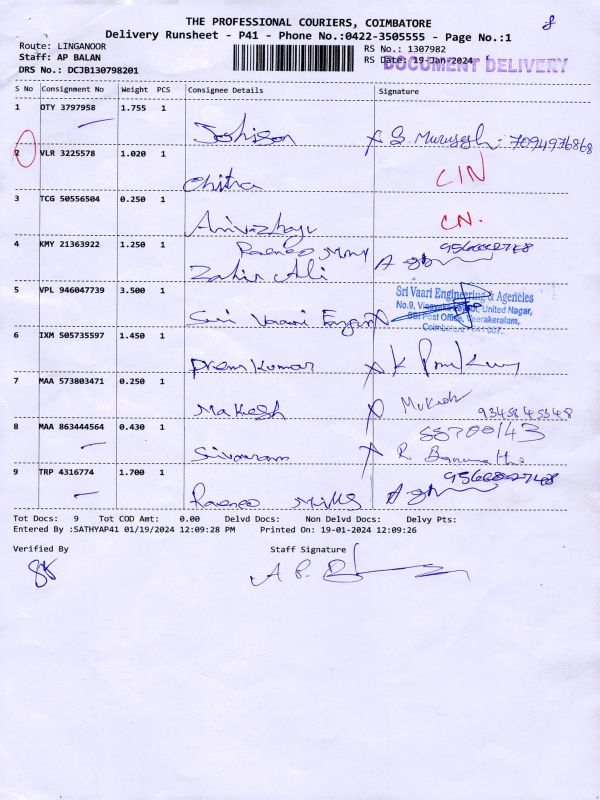 THE PROFESSIONAL COURIERS, COIMBATORE
8
Delivery Runsheet - P41 - Phone No.:0422-3505555 - Page No.:1
Route: LINGANOOR
RS No.: 1307982
Staff: AP BALAN
RS Date: 19-Jan-2024
DOCUMENT DELIVERY
DRS No.: DCJB130798201
S No Consignment No Weight PCS Consignee Details Signature
1 DTY 3797958 1.755 1
Joshison S. Murugesh: 7094976868
2 VLR 3225578 1.020 1
Chitra C/N
3 TCG 50556504 0.250 1
Arivazhagu CN.
4 KMY 21363922 1.250 1
Zakir Ali
5 VPL 946047739 3.500 1
Sri Vaari Engineering & Agencies
No.9, United Nagar,
Post Office, Veerakeralam,
Coimbatore - 641 007.
Sri Vaari
6 IXM 505735597 1.450 1
Prem Kumar
7 MAA 573803471 0.250 1
Makesh Mukesh 9345845348
8 MAA 863444564 0.430 1
Sivaram R
9 TRP 4316774 1.700 1
Mills
Tot Docs: 9 Tot COD Amt: 0.00 Delvd Docs: Non Delvd Docs: Delvy Pts:
Entered By :SATHYAP41 01/19/2024 12:09:28 PM Printed On: 19-01-2024 12:09:26
Verified By Staff Signature